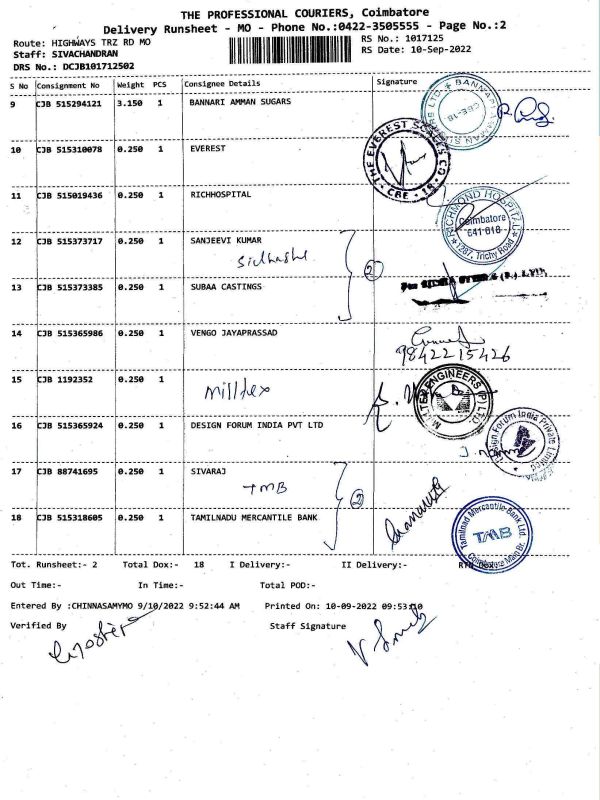 THE PROFESSIONAL COURIERS, Coimbatore
Delivery Runsheet - MO - Phone No.:0422-3505555 - Page No.:2
Route: HIGHWAYS TRZ RD MO
RS No.: 1017125
Staff: SIVACHANDRAN
RS Date: 10-Sep-2022
DRS No.: DCJB101712502
S No Consignment No Weight PCS Consignee Details Signature
9 CJB 515294121 3.150 1 BANNARI AMMAN SUGARS
10 CJB 515310078 0.250 1 EVEREST
THE EVEREST CO CBE - 18
11 CJB 515019436 0.250 1 RICHHOSPITAL
RICHMOND HOSPITAL
Coimbatore
641 018
1287, Trichy Road
12 CJB 515373717 0.250 1 SANJEEVI KUMAR
2
13 CJB 515373385 0.250 1 SUBAA CASTINGS
14 CJB 515365986 0.250 1 VENGO JAYAPRASSAD
9842215426
15 CJB 1192352 0.250 1
Milltex
MILLTEX ENGINEERS (P) LTD
16 CJB 515365924 0.250 1 DESIGN FORUM INDIA PVT LTD
Design Forum India Private Limited
17 CJB 88741695 0.250 1 SIVARAJ
TMB
2
18 CJB 515318605 0.250 1 TAMILNADU MERCANTILE BANK
Tamilnad Mercantile Bank Ltd.
TMB
Coimbatore Main Br.
Tot. Runsheet:- 2 Total Dox:- 18 I Delivery:- II Delivery:-
Out Time:- In Time:- Total POD:-
Entered By :CHINNASAMYMO 9/10/2022 9:52:44 AM Printed On: 10-09-2022 09:53:10
Verified By Staff Signature